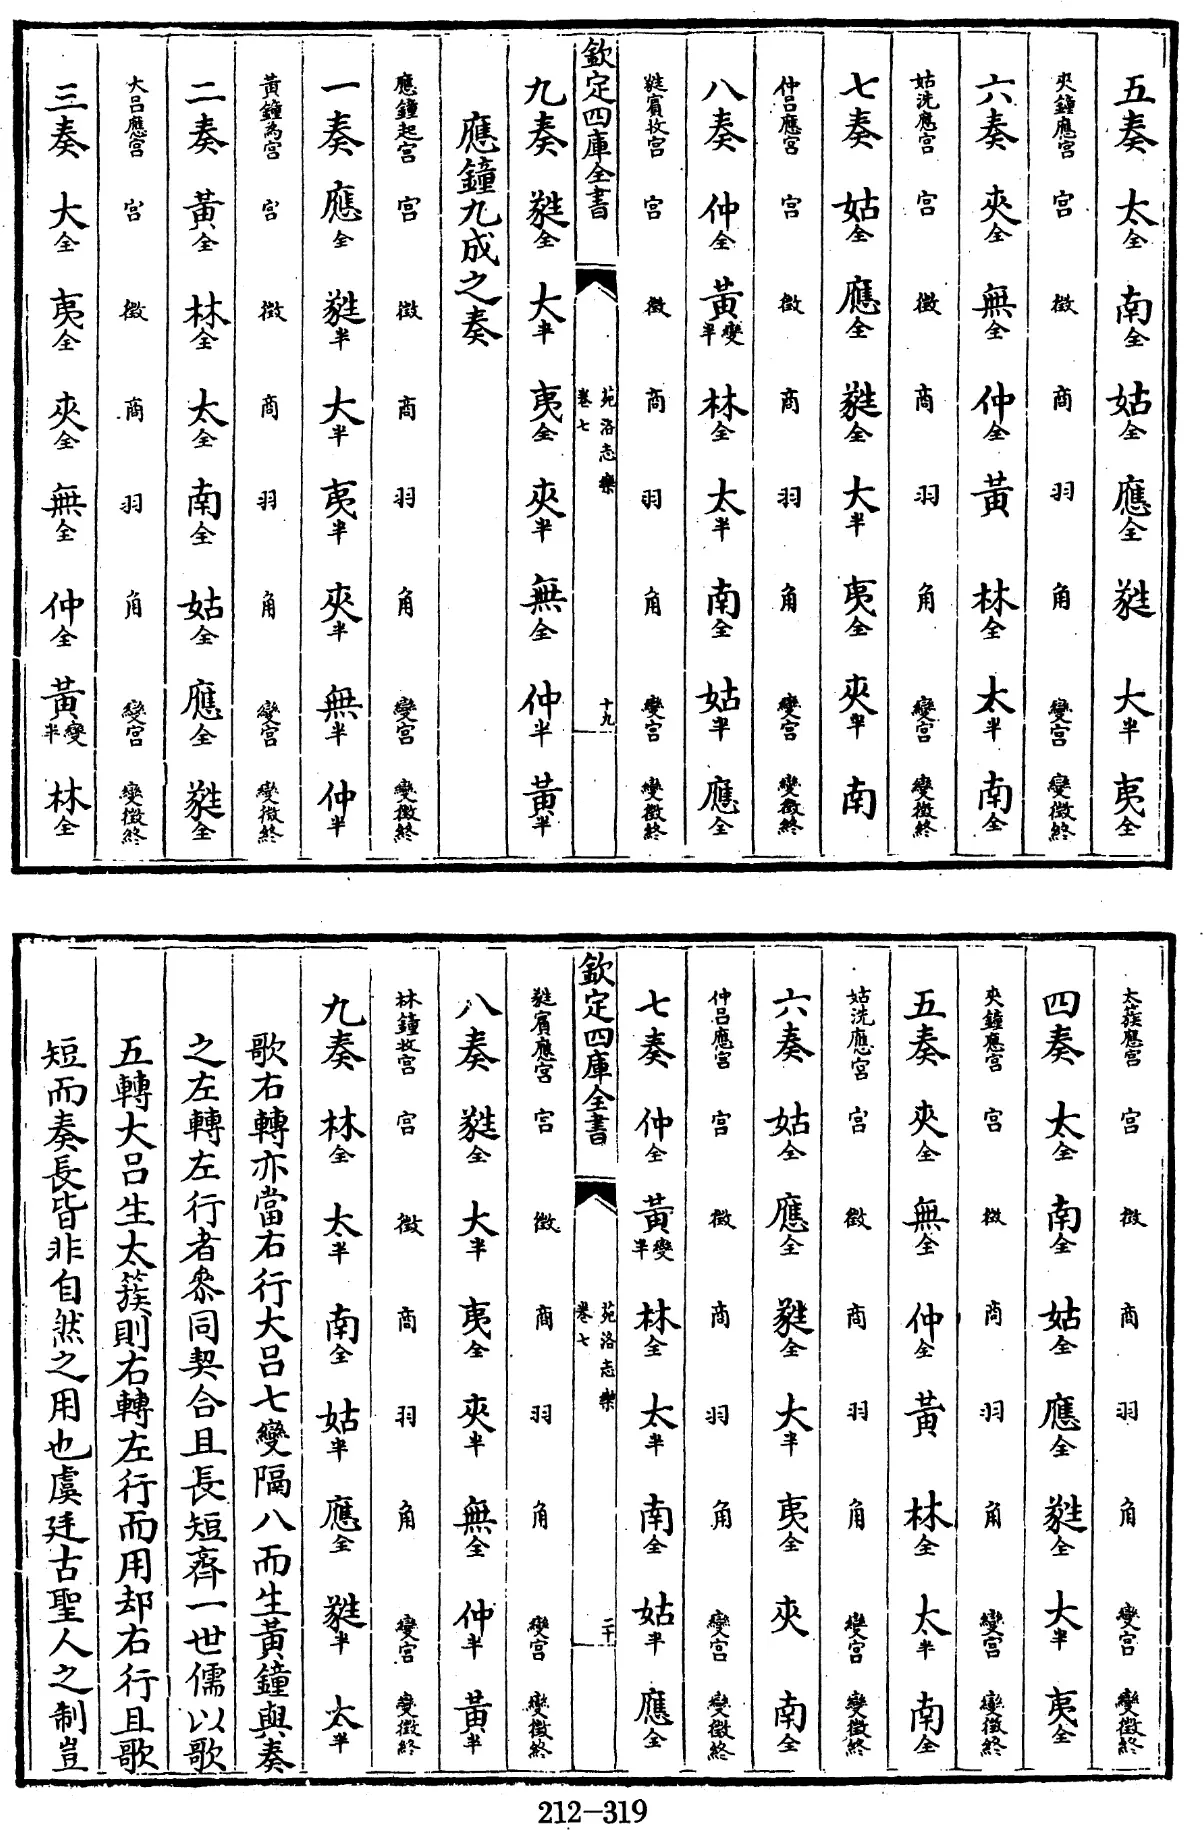 五奏 太全 南全 姑全 應全 蕤 大半 夷全
夾鐘應宮 宮 徵 商 羽 角 變宮 變徵終
六奏 夾全 無全 仲全 黃 林全 太半 南全
姑洗應宮 宮 徵 商 羽 角 變宮 變徵終
七奏 姑全 應全 蕤全 大半 夷全 夾半 南
仲呂應宮 宮 徵 商 羽 角 變宮 變徵終
八奏 仲全 黃變半 林全 太半 南全 姑半 應全
蕤賓收宮 宮 徵 商 羽 角 變宮 變徵終
欽定四庫全書 苑洛志樂 卷七 十九
九奏 蕤全 大半 夷全 夾半 無全 仲半 黃半
應鐘九成之奏
應鐘起宮 宮 徵 商 羽 角 變宮 變徵終
一奏 應全 蕤半 大半 夷半 夾半 無半 仲半
黃鐘為宮 宮 徵 商 羽 角 變宮 變徵終
二奏 黃全 林全 太全 南全 姑全 應全 蕤全
大呂應宮 宮 徵 商 羽 角 變宮 變徵終
三奏 大全 夷全 夾全 無全 仲全 黃變半 林全
太蔟應宮 宮 徵 商 羽 角 變宮 變徵終
四奏 太全 南全 姑全 應全 蕤全 大半 夷全
夾鐘應宮 宮 徵 商 羽 角 變宮 變徵終
五奏 夾全 無全 仲全 黃 林全 太半 南全
姑洗應宮 宮 徵 商 羽 角 變宮 變徵終
六奏 姑全 應全 蕤全 大半 夷全 夾 南全
仲呂應宮 宮 徵 商 羽 角 變宮 變徵終
七奏 仲全 黃變半 林全 太半 南全 姑半 應全
欽定四庫全書 苑洛志樂 卷七 二十
蕤賓應宮 宮 徵 商 羽 角 變宮 變徵終
八奏 蕤全 大半 夷全 夾半 無全 仲半 黃半
林鐘收宮 宮 徵 商 羽 角 變宮 變徵終
九奏 林全 太半 南全 姑半 應全 蕤半 太半
歌右轉亦當右行大呂七變隔八而生黃鐘與奏
之左轉左行者叅同契合且長短齊一世儒以歌
五轉大呂生太蔟則右轉左行而用却右行且歌
短而奏長皆非自然之用也虞廷古聖人之制豈
212-319